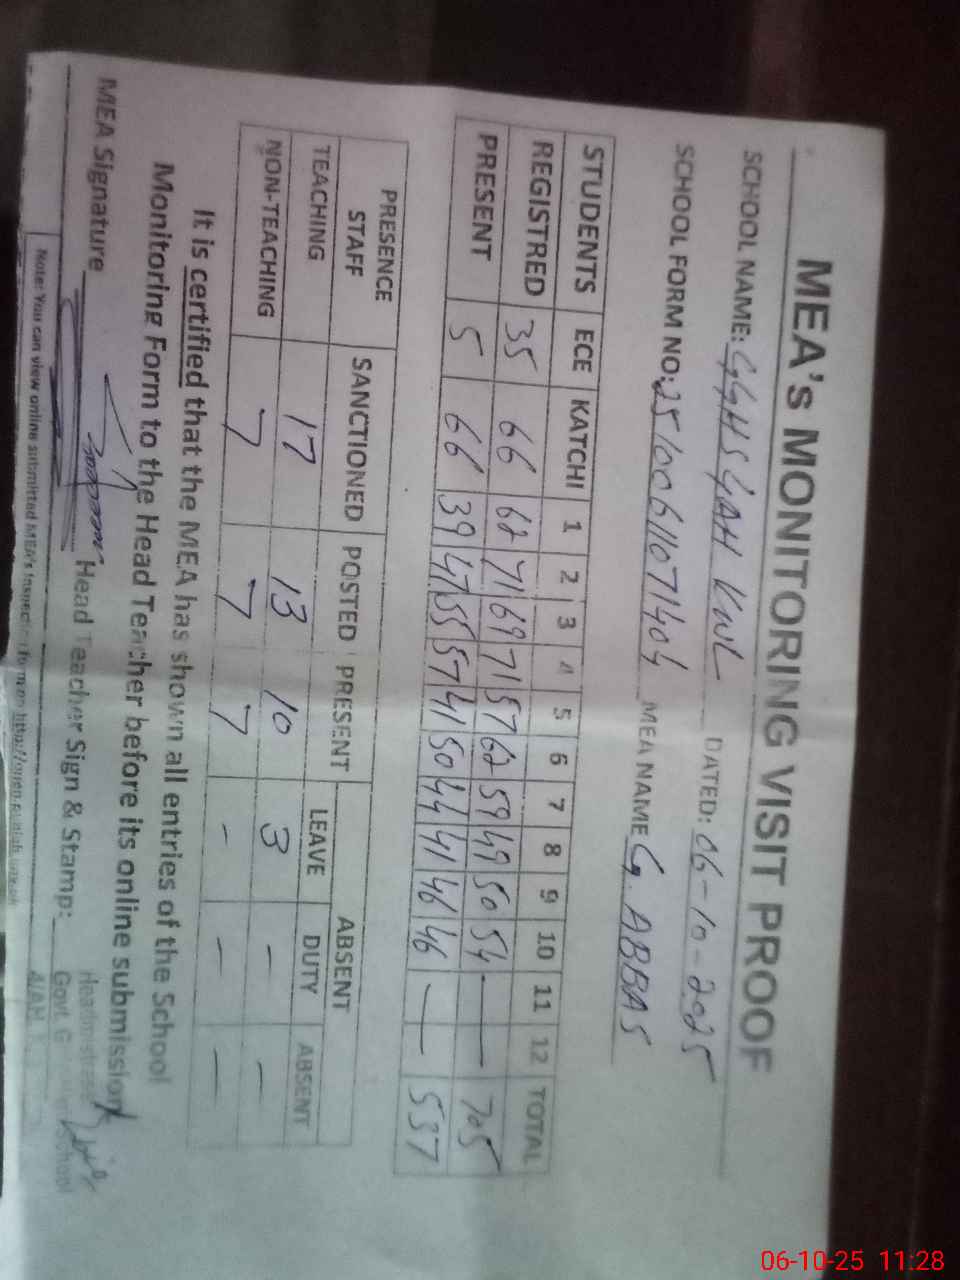 MEA's MONITORING VISIT PROOF
SCHOOL NAME: GGHS 4AH KWL DATED: 06-10-2025
SCHOOL FORM NO: 25100611071404 MEA NAME G. ABBAS
STUDENTS ECE KATCHI 1 2 3 4 5 6 7 8 9 10 11 12 TOTAL
REGISTRED 35 66 62 71 69 71 57 62 59 49 50 54 — — 705
PRESENT 5 66 39 47 55 57 41 50 44 41 46 46 — — 537
PRESENCE STAFF SANCTIONED POSTED PRESENT ABSENT
LEAVE DUTY ABSENT
TEACHING 17 13 10 3 - —
NON-TEACHING 7 7 7 - - —
It is certified that the MEA has shown all entries of the School
Monitoring Form to the Head Teacher before its online submission.
MEA Signature Head Teacher Sign & Stamp:
Headmistress
Govt. G School
4/AH
Note: You can view online submitted MEA's Inspection form on
06-10-25 11:28